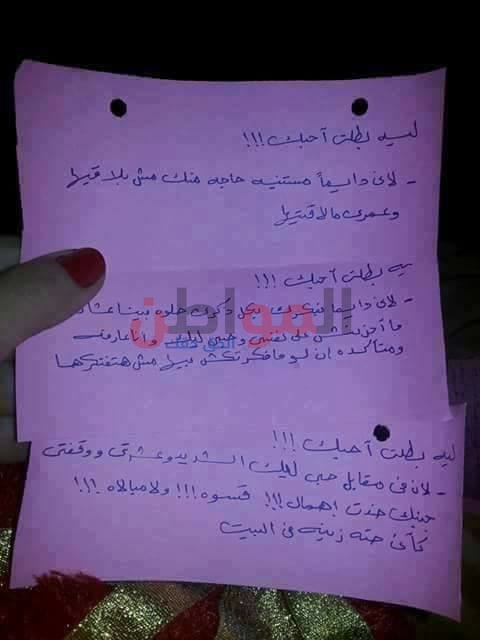 ليه بطلت أحبك !!!
- لانى دايماً مستنيه حاجه منك مش بلاقيها
وعمرى مالاقيتها
يه بطلت أحبك !!!
- لانى دايماً فكرك بكل ذكرى حلوه بيناعشان
ما أحزنش على نفسى وحبى ليك وانا عارفه
ومتاكده إن لو مافكرتكش بيها مش هتفتكرها
المواطن
ليه بطلت أحبك !!!
- لان فى مقابل حبى ليك الشديد وعشرتى ووقفتى
جنبك خدت إهمال !!! قسوه !!! ولا مبالاه !!!
كأنى حته زينه فى البيت